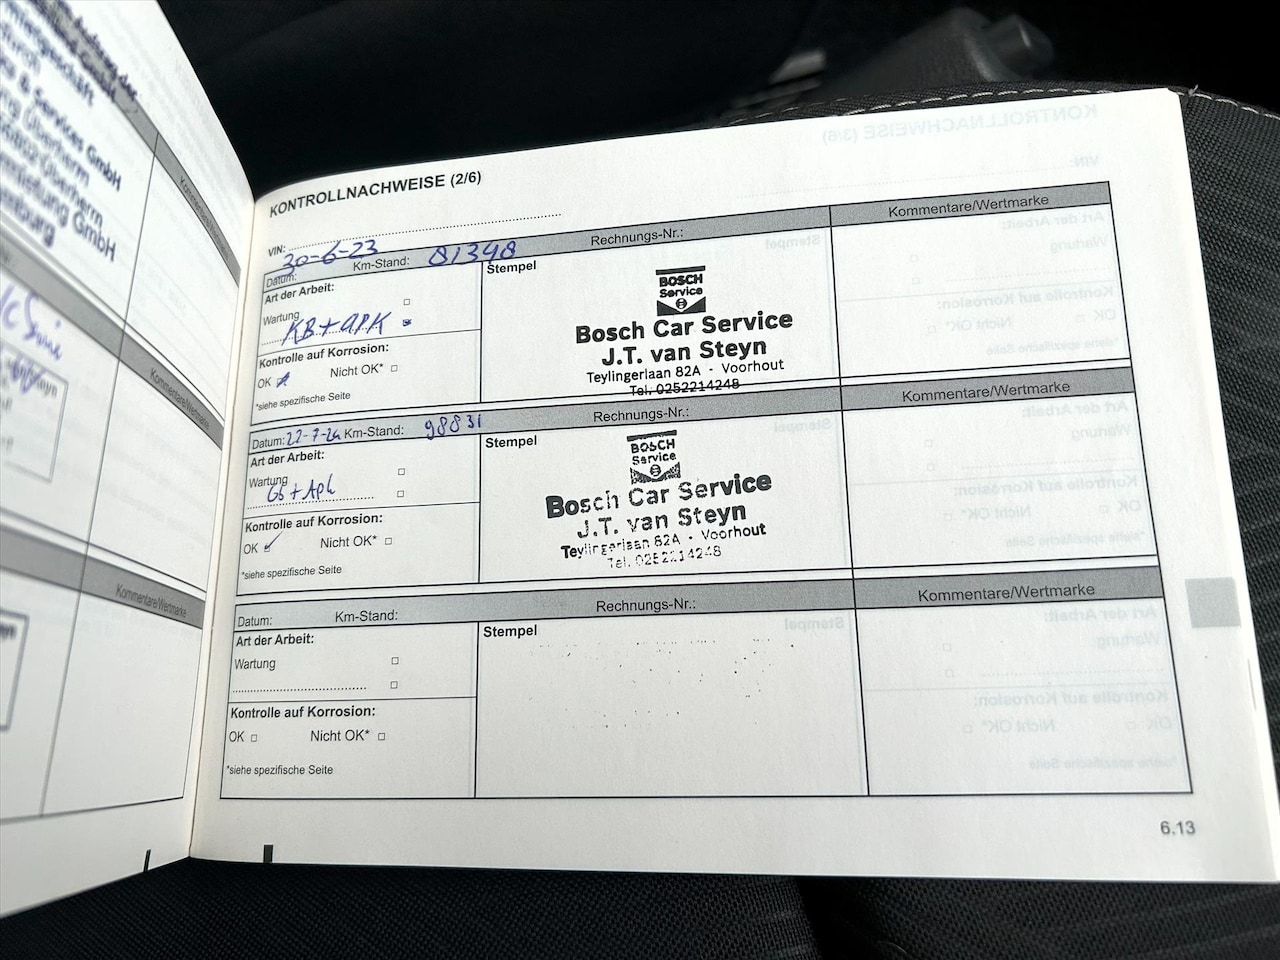 & Services GmbH
Überherrn
GmbH
Kommentare/Wertmarke
Kommentare/Wertmarke
KONTROLLNACHWEISE (2/6)
VIN:
Datum: 30-6-23 Km-Stand: 81348 Rechnungs-Nr.: Kommentare/Wertmarke
Art der Arbeit:
Wartung
KB + APK
Kontrolle auf Korrosion:
OK Nicht OK*
*siehe spezifische Seite
Stempel
BOSCH
Service
Bosch Car Service
J.T. van Steyn
Teylingerlaan 82A - Voorhout
Tel. 0252214248
Datum: 22-7-24 Km-Stand: 98831 Rechnungs-Nr.: Kommentare/Wertmarke
Art der Arbeit:
Wartung
Gb + Apk
Kontrolle auf Korrosion:
OK Nicht OK*
*siehe spezifische Seite
Stempel
BOSCH
Service
Bosch Car Service
J.T. van Steyn
Teylingerlaan 82A - Voorhout
Tel. 0252214248
Datum: Km-Stand: Rechnungs-Nr.: Kommentare/Wertmarke
Art der Arbeit:
Wartung
Kontrolle auf Korrosion:
OK Nicht OK*
*siehe spezifische Seite
Stempel
6.13